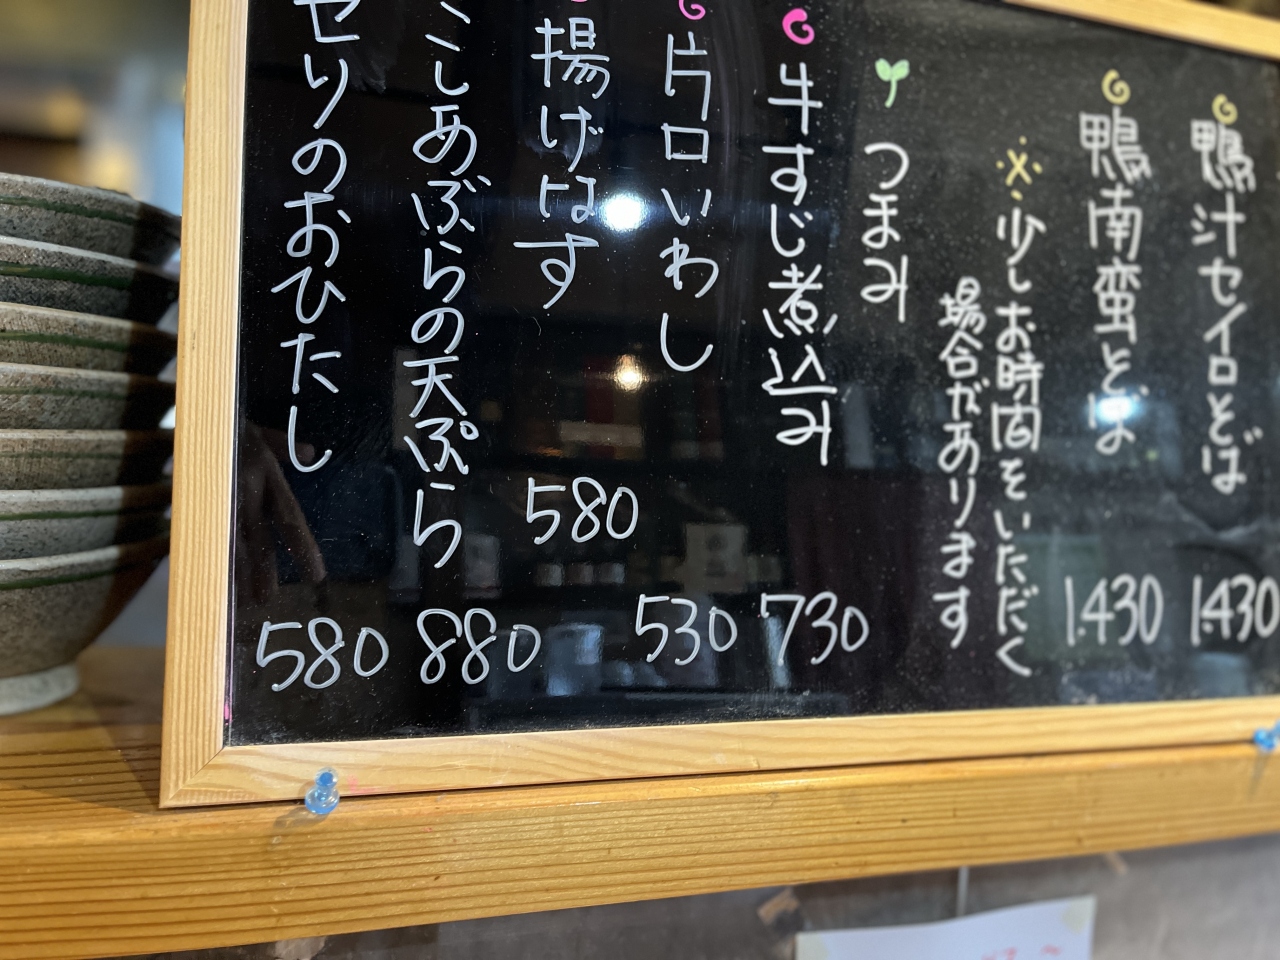 鴨汁セイロそば
1.430
鴨南蛮そば
1.430
※少しお時間をいただく
場合があります
つまみ
牛すじ煮込み
730
片口いわし
530
揚げはす
580
こしあぶらの天ぷら
880
セリのおひたし
580